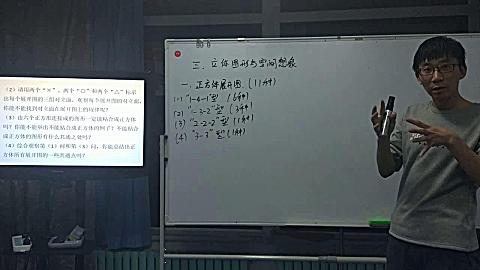 (2) 请用两个“×”、两个“□”和两个“△”标示
出每个展开图的三组对立面，观察每个展开图的对立面，
你能不能找到对立面在展开图上的规律呢？
(3) 由六个正方形连接成的图形一定能粘合成正方体
吗？你能不能举出不能粘合成正方体的例子？不能粘合
成正方体的图形有什么共通之处吗？
(4) 综合观察第(1)问和第(3)问，你能总结出正
方体所有展开图的一些共通点吗？
三、立体图形与空间想象
一、正方体展开图 (11种)
(1) "1-4-1"型 (6种)
(2) "1-3-2"型 (3种)
(3) "2-2-2"型 (1种)
(4) "3-3"型 (1种)